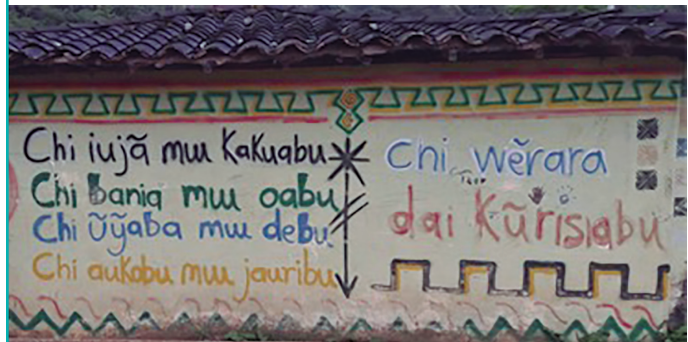 Chi iujã muu Kakuabu
Chi bania muu oabu
Chi Ũỹaba muu debu
Chi aukobu muu jauribu
Chi wẽrara
dai Kũrisiabu